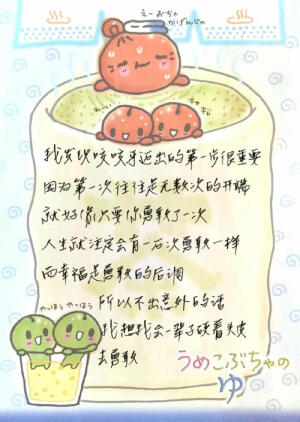 えーおちゃ
かげんじゃ
わーい
キャキャ
我发现咬咬牙迈出的第一步很重要
因为第一次往往是无数次的开端
就好像只要你勇敢了一次
人生就注定会有一百次勇敢一样
而幸福是勇敢的后调
所以不出意外的话
我想我会一辈子硬着头皮
去勇敢
やっほぅ やっほぅ
うめこぶちゃの
ゆ